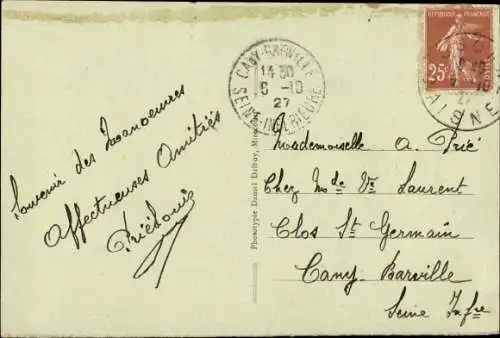 Souvenir des Manoeuvres
Affectueuses Amitiés
CANY-BARVILLE
14 30
6 - 10
27
SEINE-INFÉRIEURE
REPUBLIQUE FRANÇAISE
25c
AISNE
Phototypie Daniel Delboy,
Mademoiselle A. Prié
Chez Mde Vve Laurent
Clos St Germain
Cany-Barville
Seine Infre